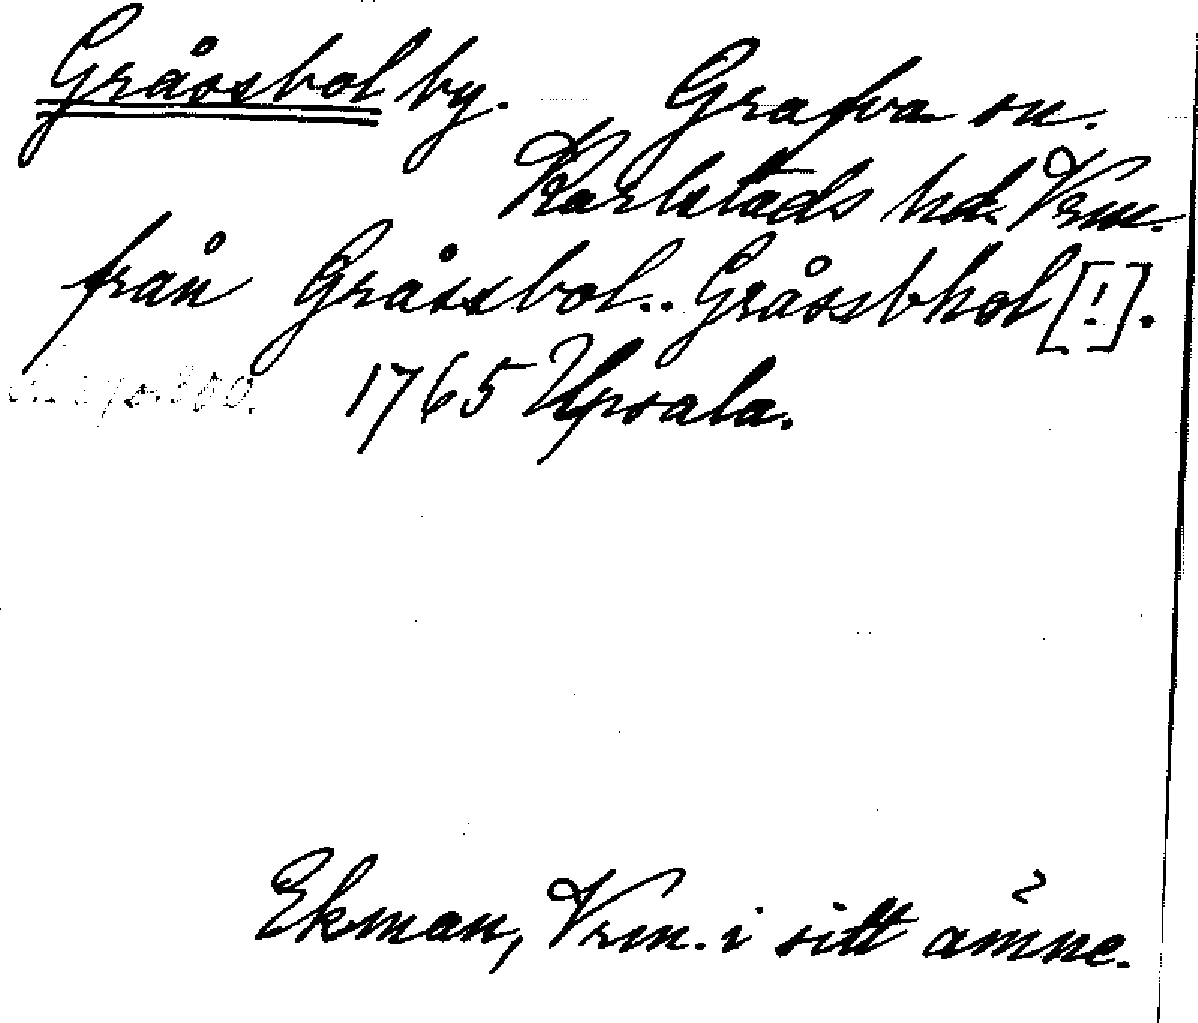 Gråssbol by. Grafva sn.
Karlstads hd. Vrm.
från Gråssbol.. Gråssbhol [!].
1765 Upsala.
Ekman, Vrm. i sitt ämne.